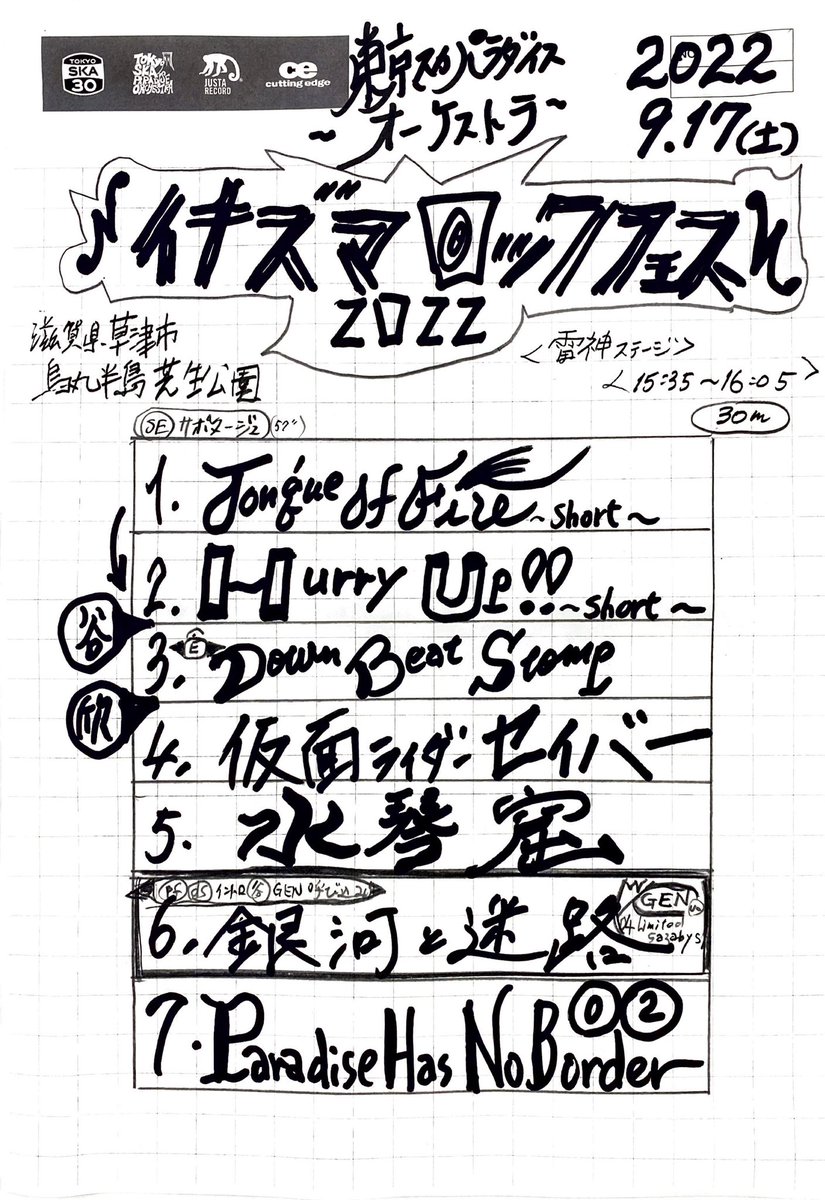 TOKYO SKA 30
TOKYO SKA PARADISE ORCHESTRA
JUSTA RECORD
cutting edge
東京スカパラダイス
~オーケストラ~
2022
9.17(土)
イナズマロックフェス
2022
滋賀県草津市
烏丸半島芝生公園
<雷神ステージ>
<15:35~16:05>
30m
SE サボタージュ(57")
1. Tongue Of Fire ~short~
2. Hurry Up!! ~short~
谷
3. E Down Beat Stomp
欣
4. 仮面ライダーセイバー
5. 水琴窟
Pf ds イントロ 谷 GEN 呼び込み
6. 銀河と迷路
GEN
04 Limited Sazabys
7. Paradise Has No Border
0 2